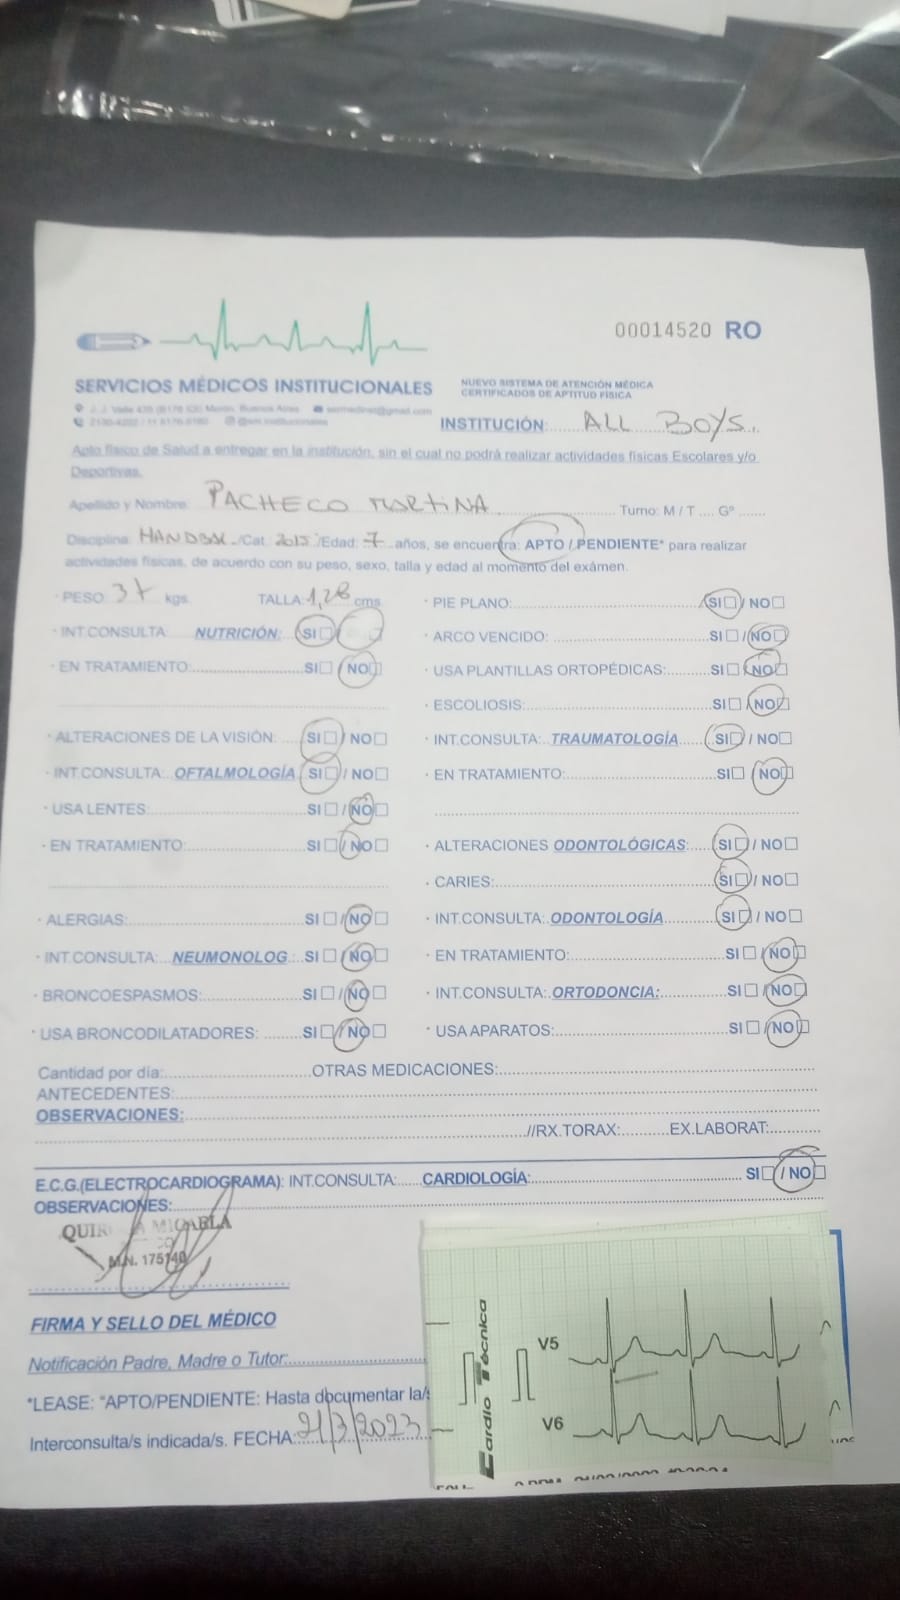 00014520 RO
SERVICIOS MÉDICOS INSTITUCIONALES
NUEVO SISTEMA DE ATENCIÓN MÉDICA
CERTIFICADOS DE APTITUD FÍSICA
INSTITUCIÓN: ALL BOYS.
Apto físico de Salud a entregar en la institución, sin el cual no podrá realizar actividades físicas Escolares y/o
Deportivas.
Apellido y Nombre: PACHECO MARTINA Turno: M / T .... Gº ......
Disciplina: /Cat: 2015 /Edad: 7 años, se encuentra: APTO / PENDIENTE* para realizar
actividades físicas, de acuerdo con su peso, sexo, talla y edad al momento del exámen.
· PESO: 37 kgs. TALLA: 1,28 cms.
· INT.CONSULTA: NUTRICIÓN: SI
· EN TRATAMIENTO: SI / NO
· ALTERACIONES DE LA VISIÓN: SI / NO
· INT.CONSULTA: OFTALMOLOGÍA SI / NO
· USA LENTES: SI / NO
· EN TRATAMIENTO: SI / NO
· ALERGIAS: SI / NO
· INT.CONSULTA: NEUMONOLOG: SI / NO
· BRONCOESPASMOS: SI / NO
· USA BRONCODILATADORES: SI / NO
· PIE PLANO: SI / NO
· ARCO VENCIDO: SI / NO
· USA PLANTILLAS ORTOPÉDICAS: SI / NO
· ESCOLIOSIS: SI / NO
· INT.CONSULTA: TRAUMATOLOGÍA SI / NO
· EN TRATAMIENTO: SI / NO
· ALTERACIONES ODONTOLÓGICAS: SI / NO
· CARIES: SI / NO
· INT.CONSULTA: ODONTOLOGÍA SI / NO
· EN TRATAMIENTO: SI / NO
· INT.CONSULTA: ORTODONCIA: SI / NO
· USA APARATOS: SI / NO
Cantidad por día: OTRAS MEDICACIONES:
ANTECEDENTES:
OBSERVACIONES:
//RX.TORAX: EX.LABORAT:
E.C.G.(ELECTROCARDIOGRAMA): INT.CONSULTA: CARDIOLOGÍA: SI / NO
OBSERVACIONES:
M.N. 175140
FIRMA Y SELLO DEL MÉDICO
Notificación Padre, Madre o Tutor:
*LEASE: "APTO/PENDIENTE: Hasta documentar la/s
Interconsulta/s indicada/s. FECHA: 21/3/2023
Cardio Técnica
V5
V6